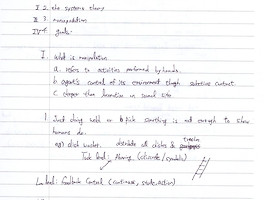 I 2. the systems theory
II 3. manipulation
IV 4. goals
I. What is manipulation
a. refers to activities performed by hands.
b. agent's control of its environment through selective contact
c. deeper than locomotion in
1. Just doing weld or & pick something is not enough to show
humans do.
eg) dish washer. distribute all dishes &
Task level: Planning (discrete / symbolic)
Low level: Feedback Control (continuous, state, action)